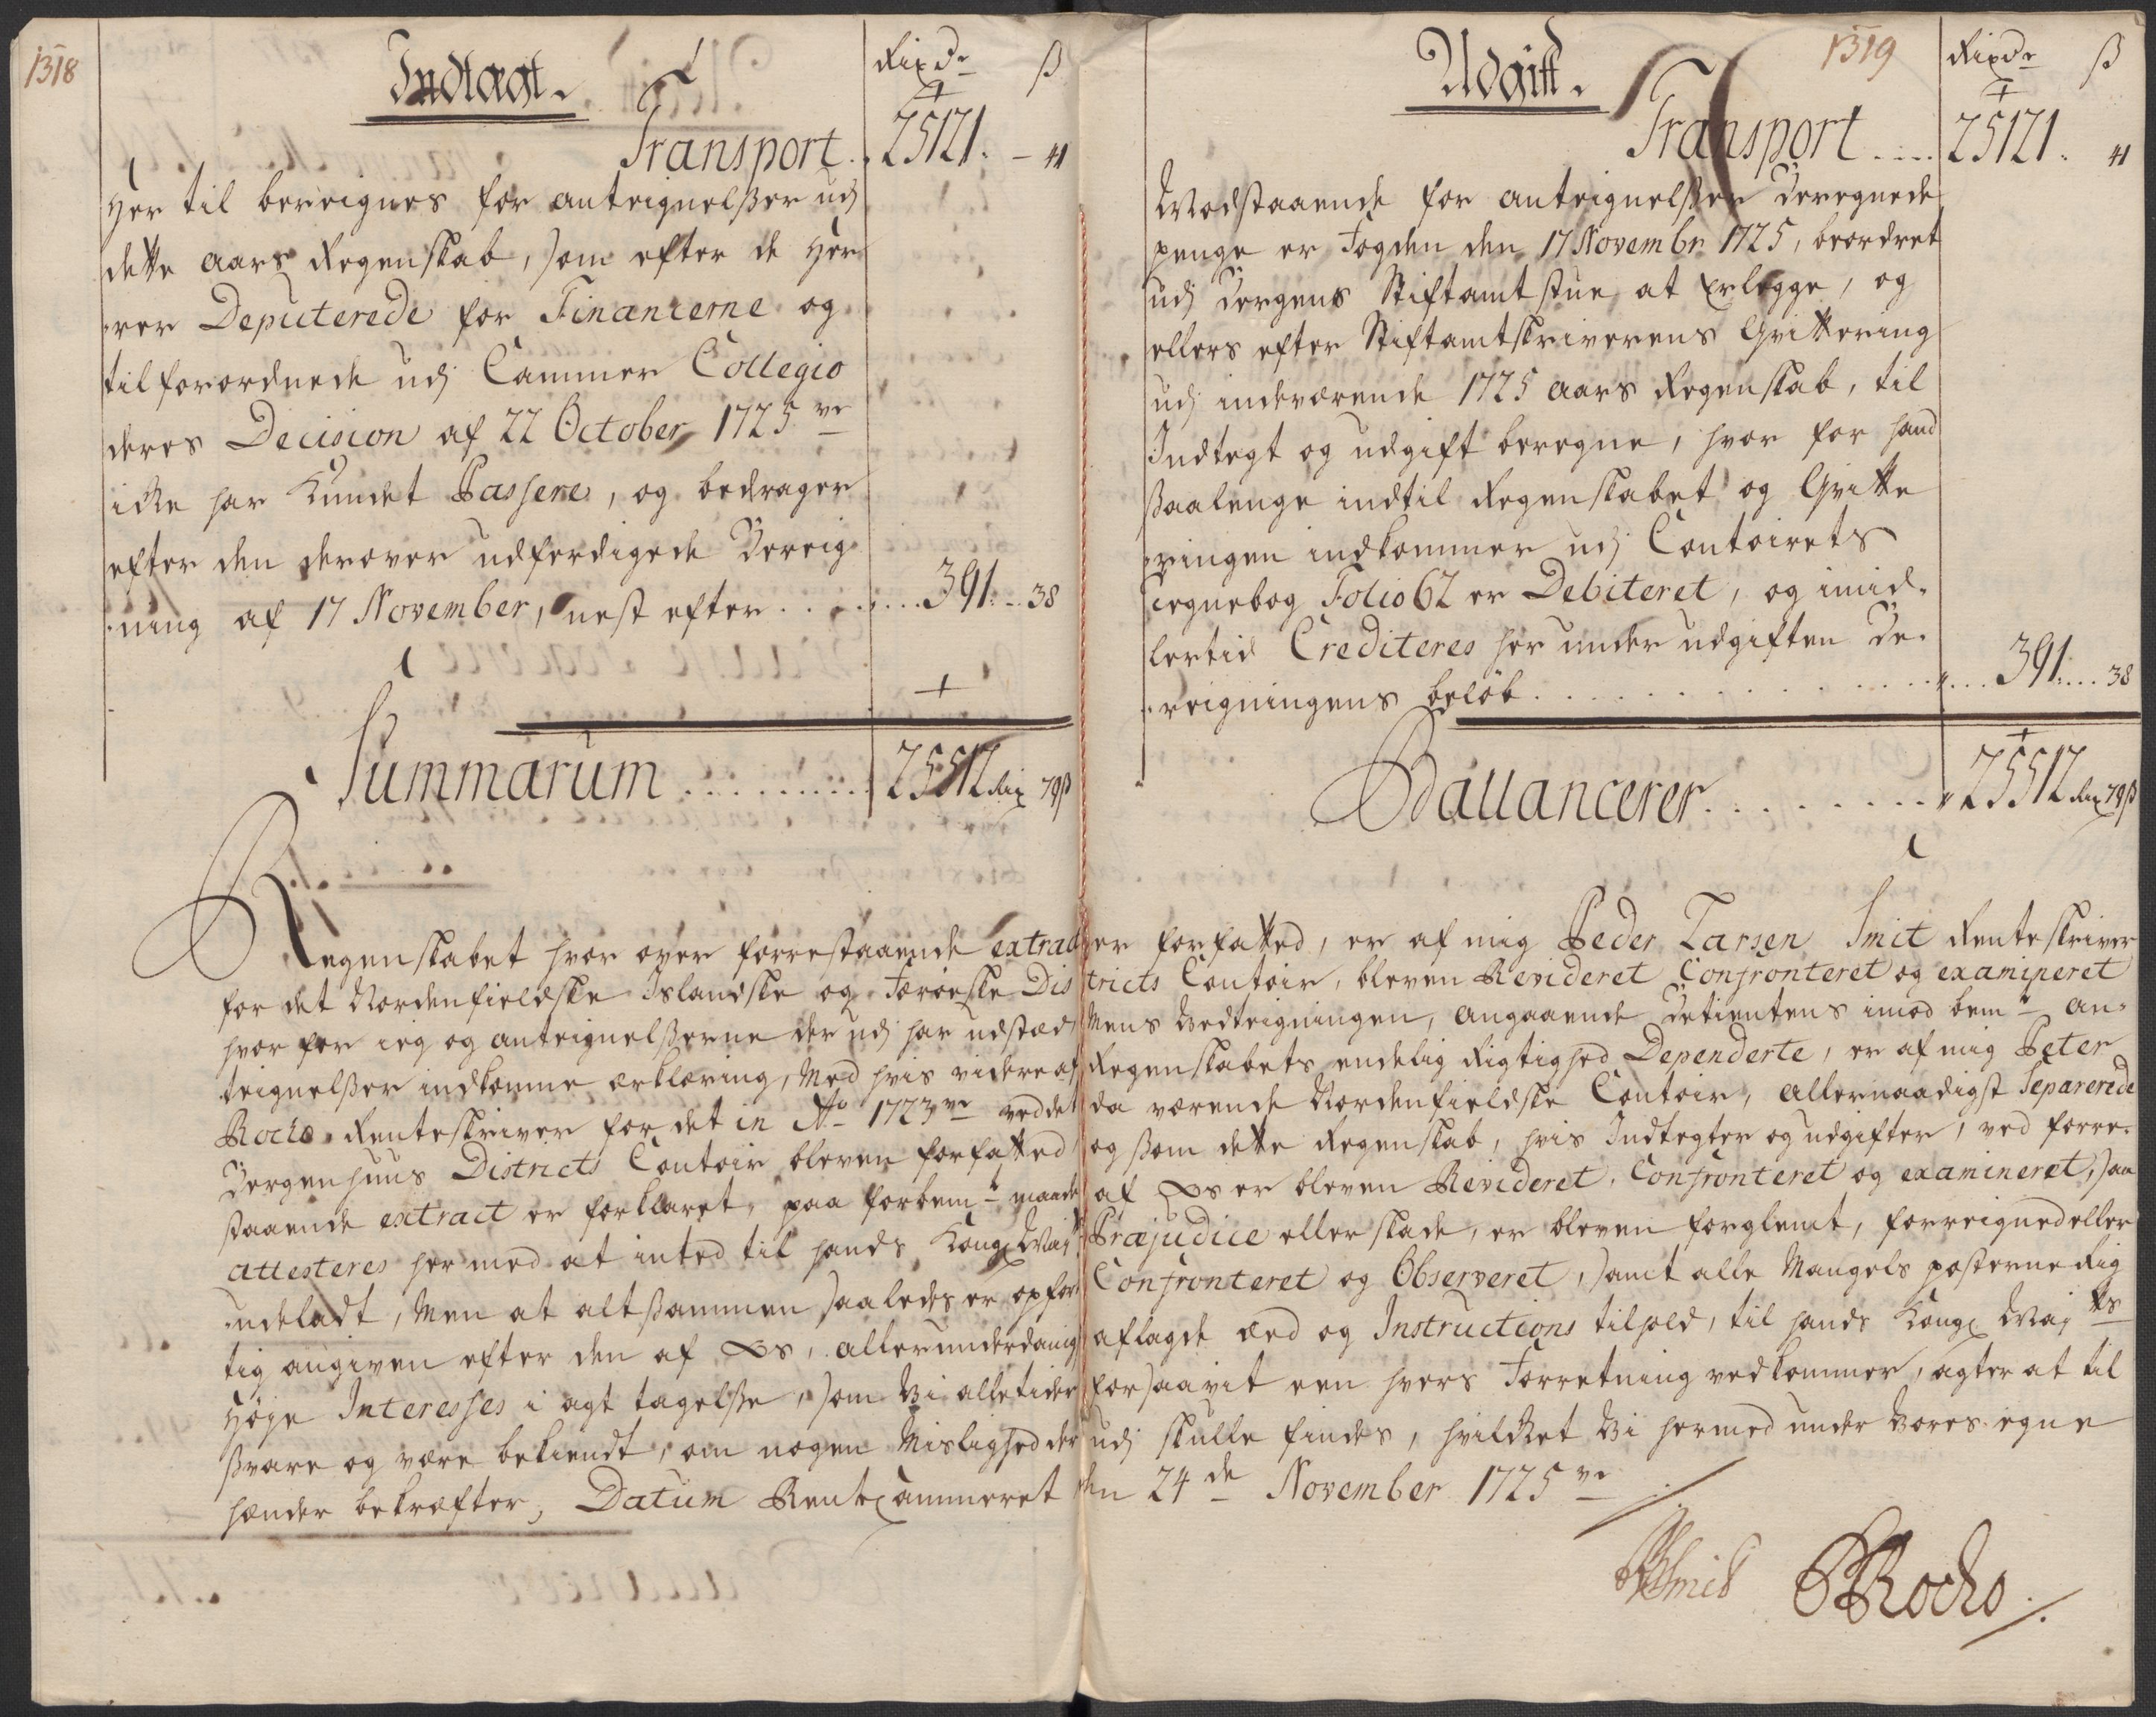 1318
Indtægt.
Rixdr ß
Transport. 25121. – 41
Her til bereignes for anteignelßer udj
dette aars Regenskab, som efter de Her
rer Deputerede for Financerne og
tilforordnede udj Cammer Collegio
deres Decision af 22 October 1725 ve
icke har Kundet Passere, og bedrager
efter den derover udferdigede Bereig
ning af 17 November, nest efter ..... 391.. 38
Summarum ......... 25512 Rix 79ß
1319
Udgift.
Rixdr ß
Transport .... 25121. 41
Modstaaende for anteignelßer Beregnede
penge er Fogden den 17 Novembr 1725, beordret
udj Bergens Stiftamtstue at Erlegge, og
ellers efter Stiftamtskriverens Qvittering
udj indeværende 1725 aars Regenskab, til
Indtegt og udgift beregne, hvor for hand
ßaalenge indtil Regenskabet og Qvitte
ringen indkommer udj Contoirets
Tegnebog Folio 62 er Debiteret, og imid-
lertid Crediteres her under udgiften Be-
reigningens beløb ........ 391.... 38
Ballancerer ........ 25512 Rix 79ß
Regenskabet hvor over forrestaaende extract er forfatted, er af mig Peder Larsen Smit Renteskriver
for det Nordenfieldske Islandske og Færøeske Districts Contoir, bleven Revideret Confronteret og examineret
hvor for ieg og anteignelßerne der udj har udstæd, Mens Vedteigningen, angaaende Detientens imod bemte an-
teignelßer indkomne erklæring, Med hvis videre af Regenskabets endelig Rigtighed Dependerte, er af mig Peter
Rocho Renteskriver for det in Ao 1723 ve ved det da værende Nordenfieldske Contoir, allernaadigst Separerede
Bergenhuus Districts Contoir bleven forfatted og ßom dette Regenskab, hvis Indtegter og udgifter, ved forre-
staaende extract er forklaret, paa forbemte maade af os er bleven Revideret, Confronteret og examineret, saa
attesteres her med at inted til hands Kongl Mayts Præjudice eller skade, er bleven forglemt, forreigned eller
udeladt, Men at altßammen saaledes er opført Confronteret og Observeret, samt alle Mangels posterne Rig
tig angiven efter den af os, allerunderdanig aflagde æed og Instructions tilhold, til hands Kongl Mayts
Høye Interesses i agt tagelße, som Vi alletider forsaavit een hvers Forretning vedkommer, agter at til
ßvare og være bekiendt, om nogen Mislighed der udj skulle findes, hvilcket Vi hermed under Vores egne
hænder bekræfter, Datum RenteCammeret den 24 de November 1725 ve
PLSmidt PRocho